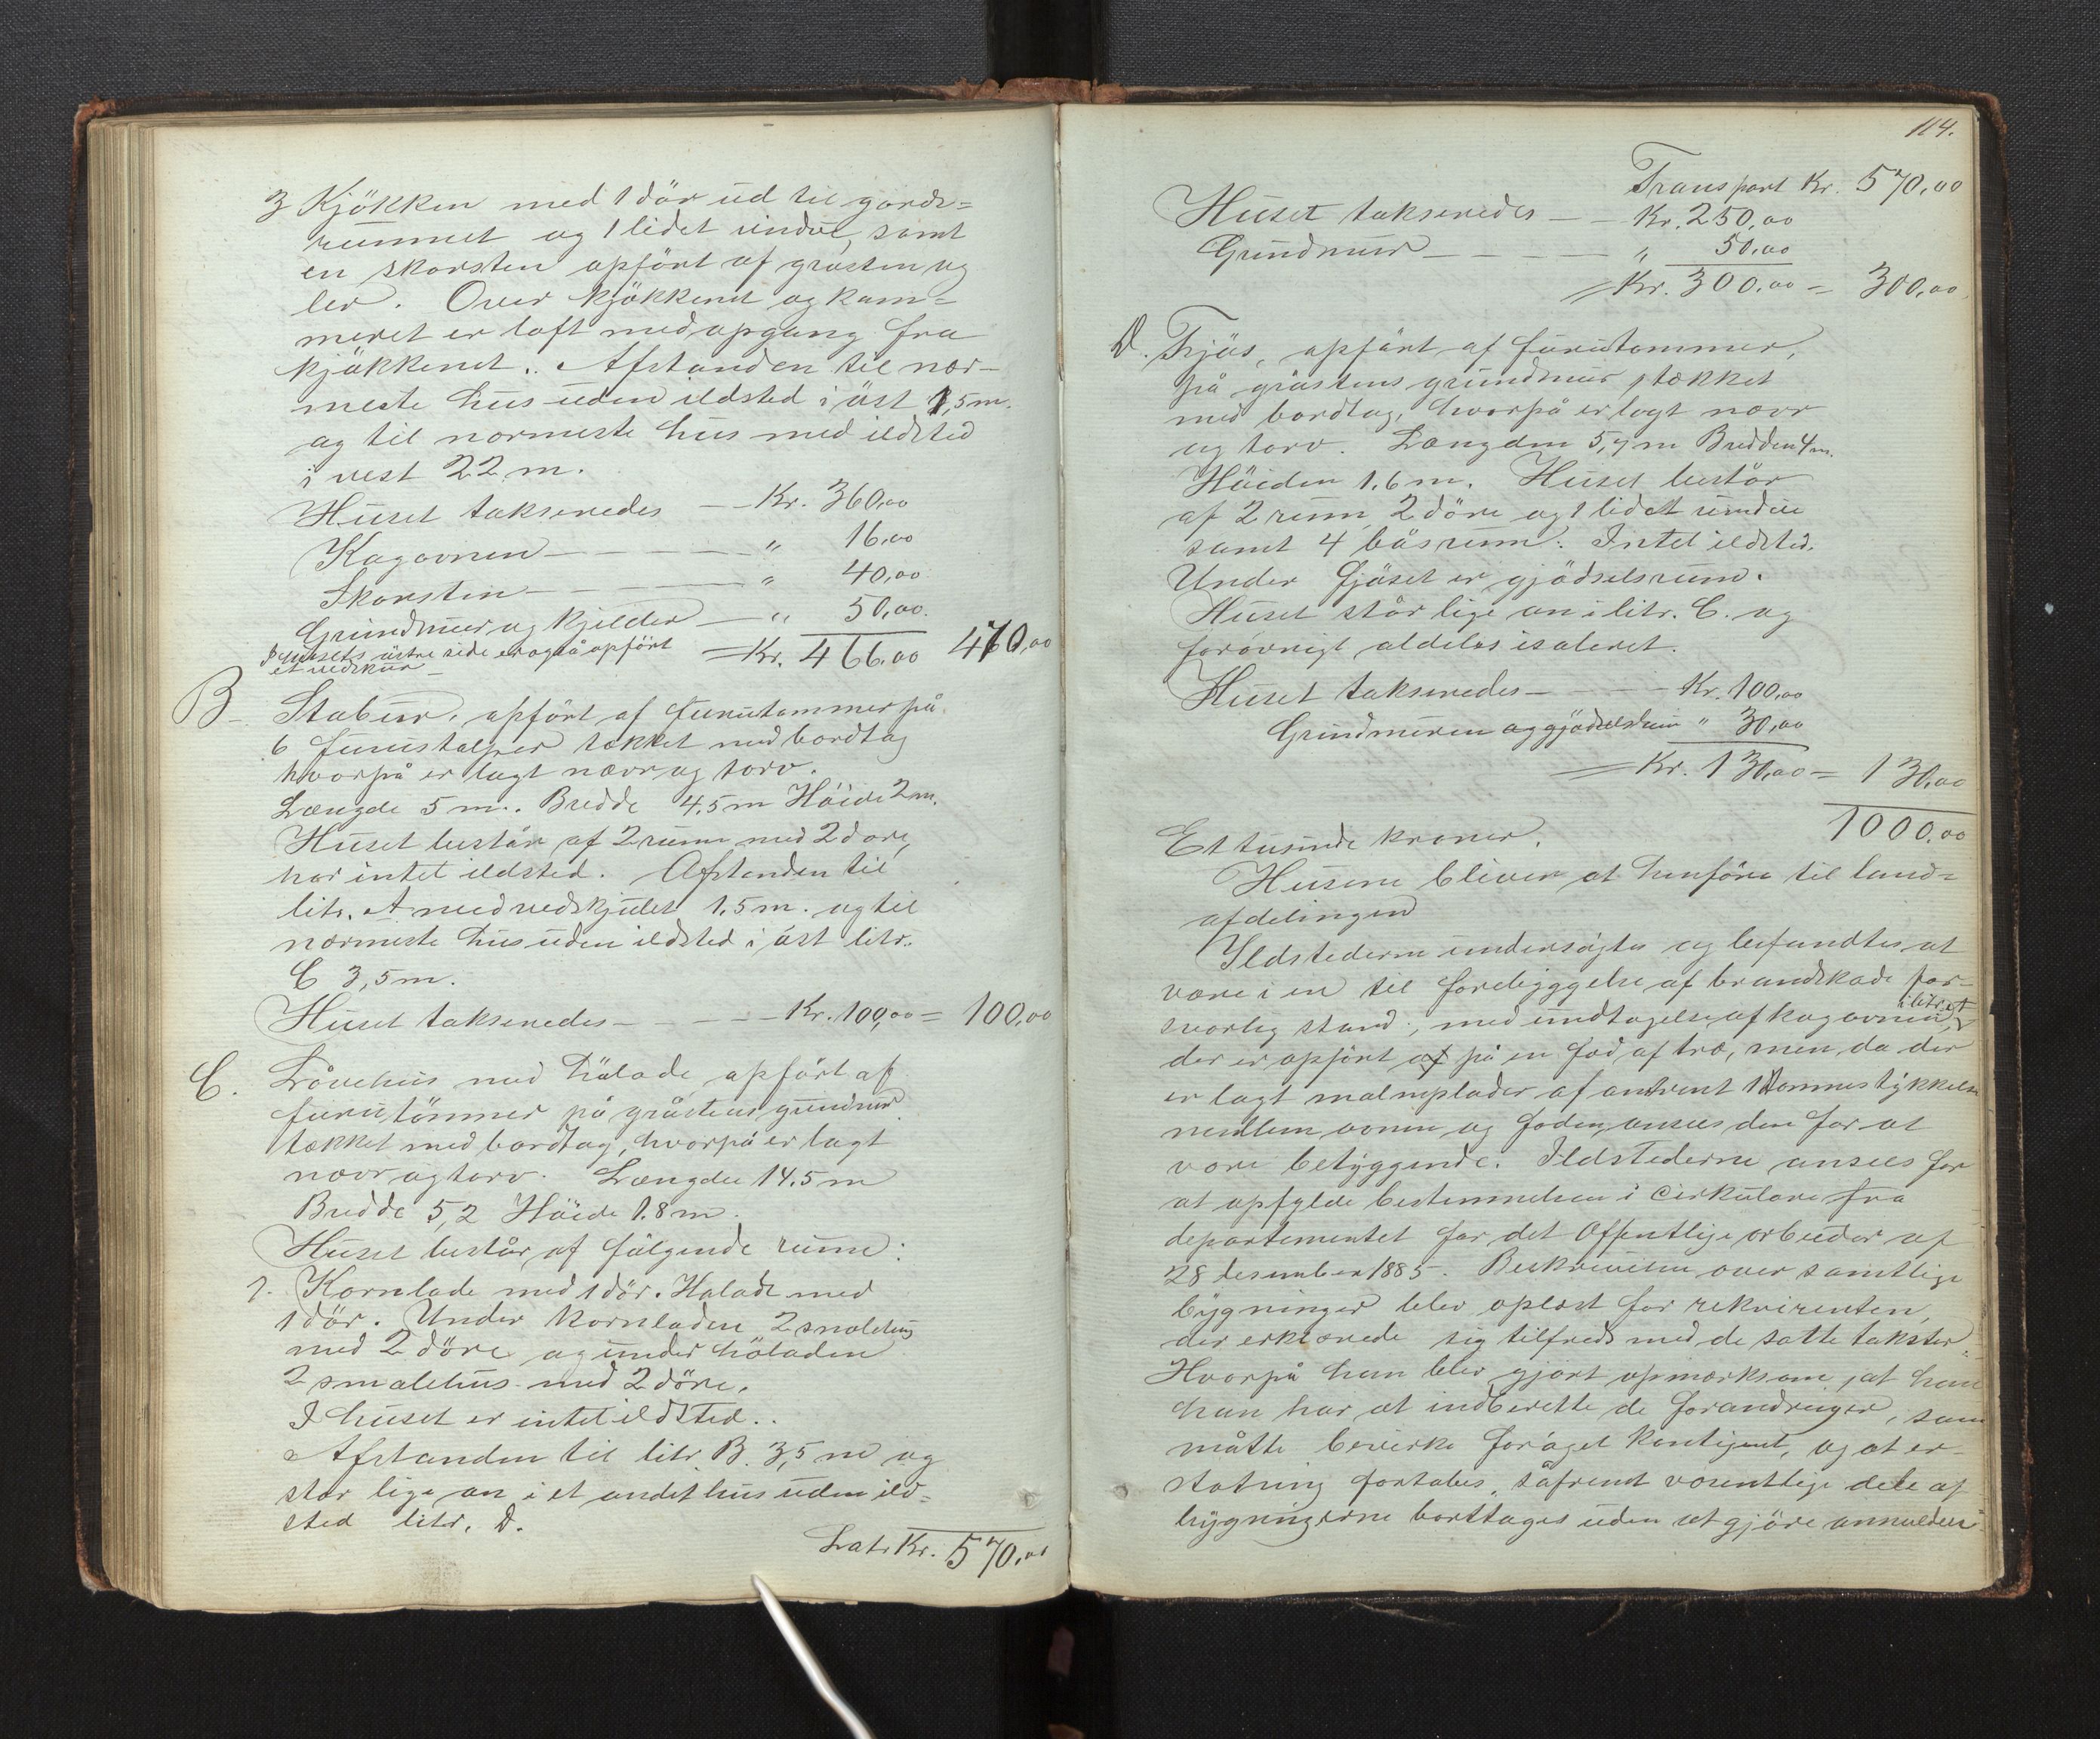 3 Kjökken med 1 dör ud til gards=
rummet og 1 lidet vindue, samt
en skorsten opfört af gråsten og
ler. Over kjökkenet og kam=
meret er loft med opgang fra
kjökkenet. Afstanden til nær-
meste hus uden ildsted i öst 1,5 m.
og til nærmeste hus med ildsted
i vest 22 m.
Huset takseredes — Kr. 360,00
Kagovnen — — — — " 16,00
Skorsten — — — — " 40,00
Grundmur og kjelder — " 50,00
I husets östre side er også opfört et vedskur —
= Kr. 466,00 470,00
B— Stabur, opfört af furutommer på
6 furustolper tækket med bordtag
hvorpå er lagt nævr og torv.
Længde 5 m. Bredde 4,5 m Höide 2 m.
Huset består af 2 rum med 2 dore,
har intet ildsted. Afstanden til
litr. A med vedskjulet 1.5 m. og til
nærmeste hus uden ildsted i öst litr.
C 3,5 m.
Huset takseredes — — — Kr. 100,00 = 100,00
C. Låvehus med hölade, opfört af
furutömmer på gråstens grundmur
tækket med bordtag, hvorpå er lagt
nævr og torv. Længden 14.5 m
Bredde 5,2 Höide 1.8 m.
Huset består af fölgende rum:
1. Kornlade med 1 dör. Hölade med
1 dör. Under kornladen 2 smalehus
med 2 döre og under höladen
2 smalehus med 2 döre.
I huset er intet ildsted.
Afstanden til litr. B. 3,5 m og
står lige an i et andet hus uden ild=
sted litr. D.
Latr. Kr. 570,00
114.
Transport Kr. 570,00
Huset takseredes — — Kr. 250,00
Grundmur — — — — " 50,00
= Kr. 300,00 = 300,00
D. Fjös, opfört af furutommer,
på gråstens grundmur, tækket
med bordtag, hvorpå er lagt nævr
og torv. Længden 5,7 m Bredden 4 m.
Höiden 1.6 m. Huset består
af 2 rum, 2 döre og 1 lidet vindue
samt 4 båsrum. Intet ildsted.
Under fjöset er gjödselsrum.
Huset står lige an i litr. C. og
forövrigt aldeles isoleret.
Huset takseredes — — — Kr. 100,00
Grundmuren og gjödselsrum " 30,00
= Kr. 130,00 = 130,00
1000,00
Et tusinde kroner.
Husene bliver at henföre til land=
afdelingen
Ildstederne undersögtes og befandtes at
være i en til forebyggelse af brandskade for-
svarlig stand, med undtagelse af kagovnen i litr. A
der er opfört af på en fod af træ, men da der
er lagt malmplader af omtrent 1 tommes tykkelse
mellem ovnen og foden, ansees den for at
være betyggende. Ildstederne ansees for
at opfylde bestemmelsen i Cirkulære fra
departementet for det Offentlige arbeider af
28 desember 1885. Beskrivelsen over samtlige
bygninger blev oplæst for rekvirenten,
der erklærede sig tilfreds med de satte takster.
Hvorpå han blev gjort opmærksom, at han
han har at indberette de forandringer, som
måtte bevirke foröget kontigent, og at er-
statning fortabes, såfremt væsentlige dele af
bygningerne borttages uden at gjöre anmeldelse